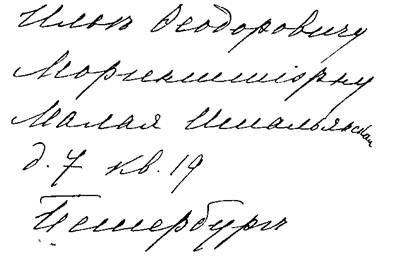 Ильѣ Ѳеодоровичу
Моргенштіерну
Малая Итальянская
д. 7 кв. 19
Петербургъ